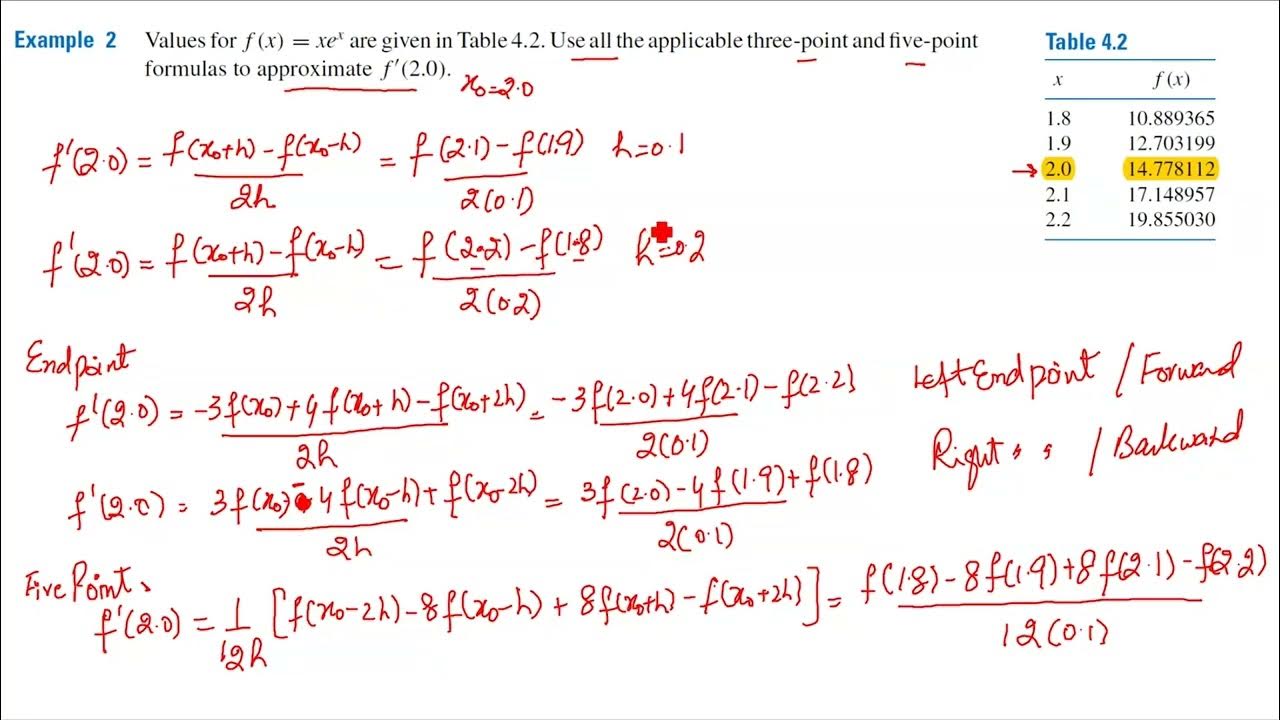 Example 2 Values for f (x) = xeˣ are given in Table 4.2. Use all the applicable three-point and five-point
formulas to approximate f′(2.0).
x₀=2.0
Table 4.2
x f (x)
1.8 10.889365
1.9 12.703199
→ 2.0 14.778112
2.1 17.148957
2.2 19.855030
f'(2.0) = f(x₀+h) - f(x₀-h) / 2h = f(2.1) - f(1.9) / 2(0.1) h=0.1
f'(2.0) = f(x₀+h) - f(x₀-h) / 2h = f(2.2) - f(1.8) / 2(0.2) h=0.2
Endpoint
f'(2.0) = -3f(x₀)+4f(x₀+h)-f(x₀+2h) / 2h = -3f(2.0)+4f(2.1)-f(2.2) / 2(0.1)
Left Endpoint / Forward
f'(2.0) = 3f(x₀) - 4f(x₀-h)+f(x₀-2h) / 2h = 3f(2.0)-4f(1.9)+f(1.8) / 2(0.1)
Right " / Backward
Five Point
f'(2.0) = 1/12h [f(x₀-2h)-8f(x₀-h)+8f(x₀+h)-f(x₀+2h)] = f(1.8)-8f(1.9)+8f(2.1)-f(2.2) / 12(0.1)